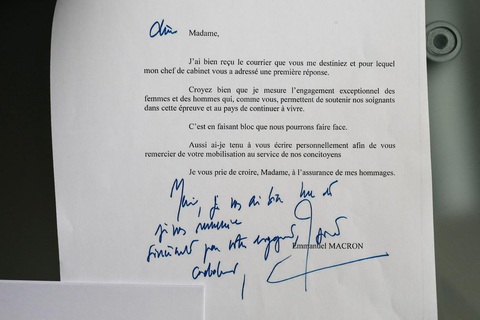 Chère Madame,
J'ai bien reçu le courrier que vous me destiniez et pour lequel
mon chef de cabinet vous a adressé une première réponse.
Croyez bien que je mesure l'engagement exceptionnel des
femmes et des hommes qui, comme vous, permettent de soutenir nos soignants
dans cette épreuve et au pays de continuer à vivre.
C'est en faisant bloc que nous pourrons faire face.
Aussi ai-je tenu à vous écrire personnellement afin de vous
remercier de votre mobilisation au service de nos concitoyens
Je vous prie de croire, Madame, à l'assurance de mes hommages.
Merci, je vous ai bien lue et
je vous remercie
sincèrement pour votre engagement,
Emmanuel MACRON
Cordialement,